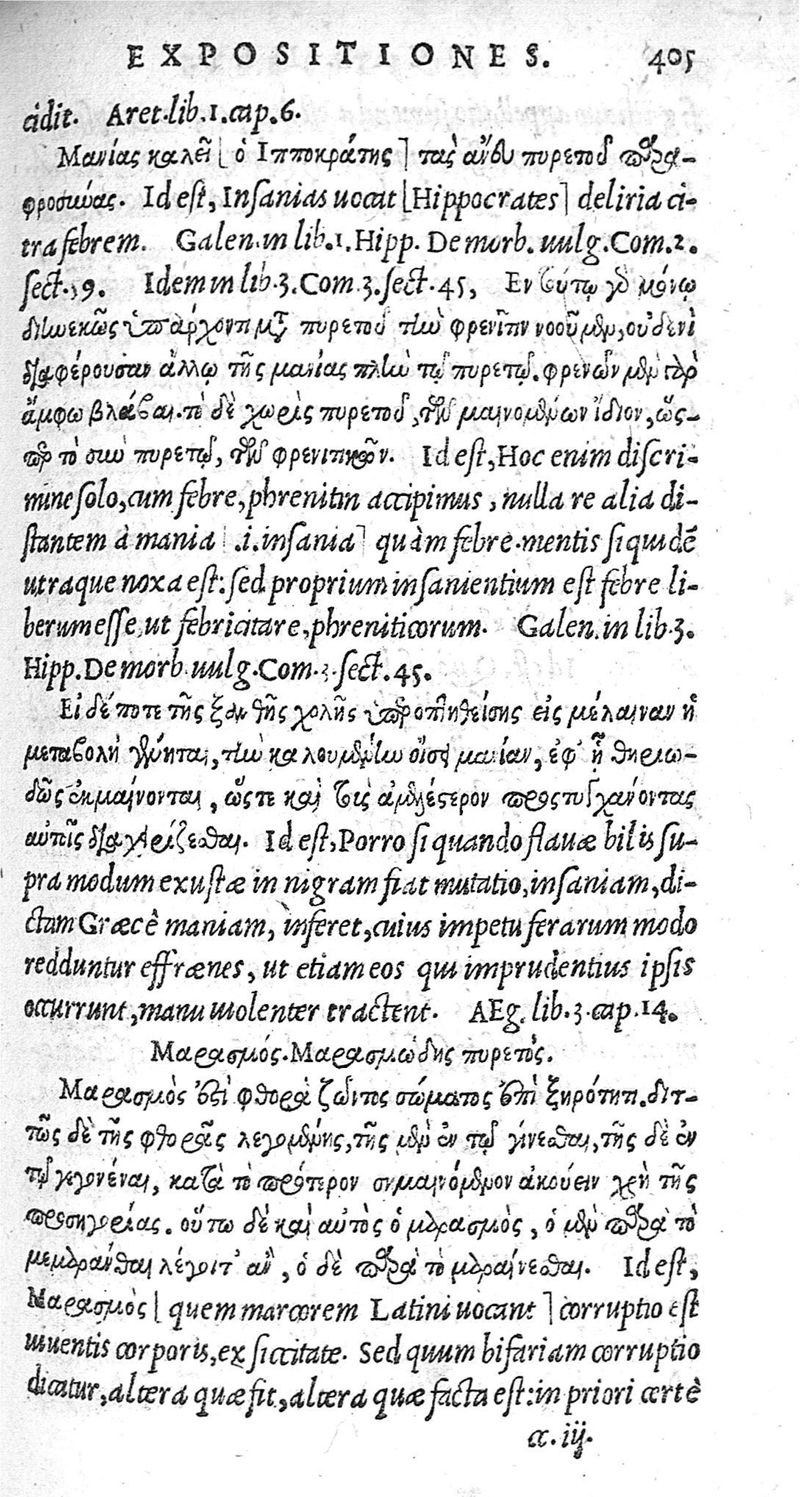 EXPOSITIONES. 405
cidit. Aret.lib.1.cap.6.
Μανίας καλεῖ [ὁ Ἱπποκράτης] τὰς ἄνευ πυρετοῦ παρα-
φροσύνας. Id est, Insanias uocat [Hippocrates] deliria ci-
tra febrem. Galen.in lib.1.Hipp. De morb. uulg.Com.2.
sect.59. Idem in lib.3.Com.3.sect.45, Εν τούτῳ γὸ μόνῳ
διωεκῶς ὑπάρχοντι μετὰ πυρετοῦ τὴν φρενῖτιν νοοῦμεν, οὐδενὶ
διαφέρουσαν ἄλλῳ τῆς μανίας πλὴν τῷ πυρετῷ. φρενῶν μὲν γὰρ
ἄμφω βλάβαι. τὸ δὲ χωρὶς πυρετοῦ, τῶν μαινομένων ἴδιον, ὥσ-
περ τὸ σὺν πυρετῷ, τῶν φρενιτικῶν. Id est, Hoc enim discri-
mine solo, cum febre, phrenitin accipimus, nulla re alia di-
stantem à mania [.i.insania] quàm febre. mentis siquidē
utraque noxa est: sed proprium insanientium est febre li-
berum esse, ut febricitare, phreniticorum. Galen.in lib.3.
Hipp.De morb.uulg.Com.3.sect.45.
Εἰ δέ ποτε τῆς ξανθῆς χολῆς ὑπεροπτηθείσης εἰς μέλαιναν ἡ
μεταβολὴ γένηται, τὴν καλουμένην οἴσει μανίαν, ἐφ' ᾗ θηριω-
δῶς ἐκμαίνονται, ὥστε καὶ τοὺς ἀμελέστερον προςτυγχάνοντας
αὐτοῖς διαχειρίζεσθαι. Id est, Porro si quando flauæ bilis su-
pra modum exustæ in nigram fiat mutatio, insaniam, di-
ctam Græcè maniam, inferet, cuius impetu ferarum modo
redduntur effrænes, ut etiam eos qui imprudentius ipsis
occurrunt, manu uiolenter tractent. AEg. lib.3.cap.14.
Μαρασμός. Μαρασμώδης πυρετός.
Μαρασμὸς ἐστὶ φθορὰ ζῶντος σώματος ἐπὶ ξηρότητι. διτ-
τῶς δὲ τῆς φθορᾶς λεγομένης, τῆς μὲν ἐν τῷ γίνεσθαι, τῆς δὲ ἐν
τῷ γεγονέναι, κατὰ τὸ πρότερον σημαινόμενον ἀκούειν χρὴ τῆς
προσηγορίας. οὕτω δὲ καὶ αὐτὸς ὁ μαρασμὸς, ὁ μὲν παρὰ τὸ
μεμαράνθαι λέγοιτ' ἂν, ὁ δὲ παρὰ τὸ μαραίνεσθαι. Id est,
Μαρασμὸς [quem marcorem Latini uocant] corruptio est
uiuentis corporis, ex siccitate. Sed quum bifariam corruptio
dicatur, altera quæ fit, altera quæ facta est: in priori certè
α.iij.